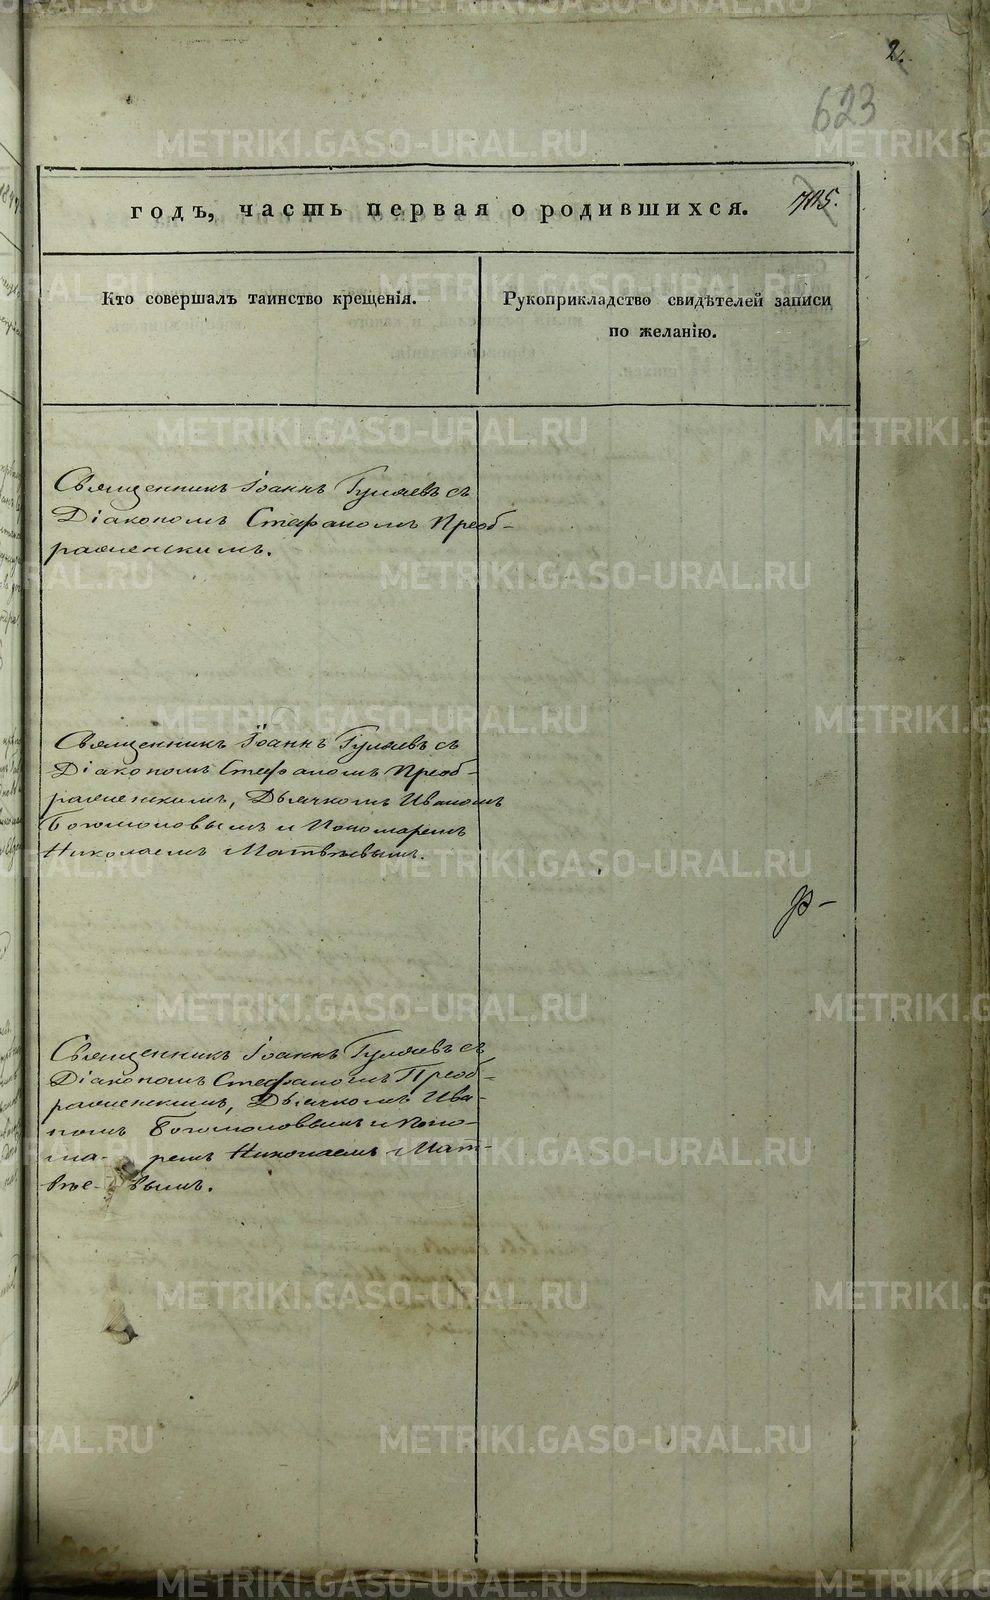 2.
623
годъ, часть первая о родившихся.
705.
Кто совершалъ таинство крещенія.
Рукоприкладство свидѣтелей записи
по желанію.
Священникъ Іоаннъ Гуляевъ съ
Діакономъ Стефаномъ Преоб-
раженскимъ.
Священникъ Іоаннъ Гуляевъ съ
Діакономъ Стефаномъ Преоб-
раженскимъ, Дьячкомъ Иваномъ
Богомоловымъ и Пономаремъ
Николаемъ Матвѣевымъ.
Священникъ Іоаннъ Гуляевъ съ
Діакономъ Стефаномъ Преоб-
раженскимъ, Дьячкомъ Ива-
номъ Богомоловымъ и Поно-
ма- ремъ Николаемъ Мат-
вѣе- вымъ.
METRIKI.GASO-URAL.RU